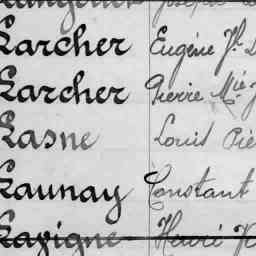 Larcher Eugène
Larcher Pierre Mie
Lasne Louis
Launay Constant
Lavigne Henri